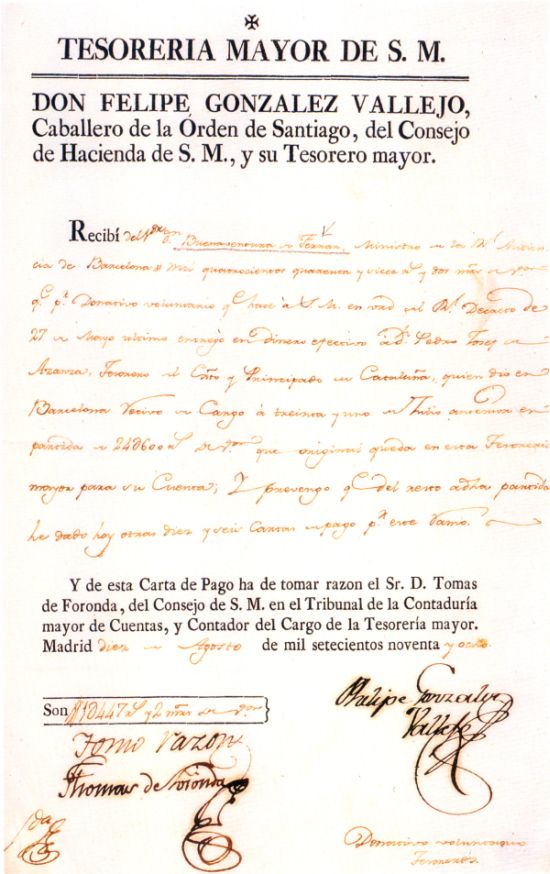 ✠
TESORERIA MAYOR DE S. M.
DON FELIPE GONZALEZ VALLEJO,
Caballero de la Órden de Santiago, del Consejo
de Hacienda de S. M., y su Tesorero mayor.
Recibí del Sr. Dn. Buenaventura de Ferran, Ministro de la Rl. Audien-
cia de Barcelona mil quatrocientos quarenta y siete rs. y dos mrs. de von.
qe. pr. Donativo voluntario qe. hace à S. M. en vrd. del Rl. Decreto de
27 de Mayo ultimo entregó en dinero efectivo à Dn. Pedro Josef de
Aranza, Tesorero del Exto. y Principado de Cataluña, quien dió en
Barcelona Recivo de Cargo à treinta y uno de Julio anterior en
partida de 24d600 rs. de von. que original queda en esta Tesoreria
mayor para su Cuenta; Y prevengo qe. del resto a dha partida
he dado hoy otras diez y seis Cartas de pago pr. este Ramo.
Y de esta Carta de Pago ha de tomar razon el Sr. D. Tomas
de Foronda, del Consejo de S. M. en el Tribunal de la Contaduría
mayor de Cuentas, y Contador del Cargo de la Tesorería mayor.
Madrid diez de Agosto de mil setecientos noventa y ocho.
Son 1d447 rs. y 2 mrs. de von.
Phelipe Gonzalez
Vallejo
Tomo razon
Thomas de Foronda
Donativo voluntario